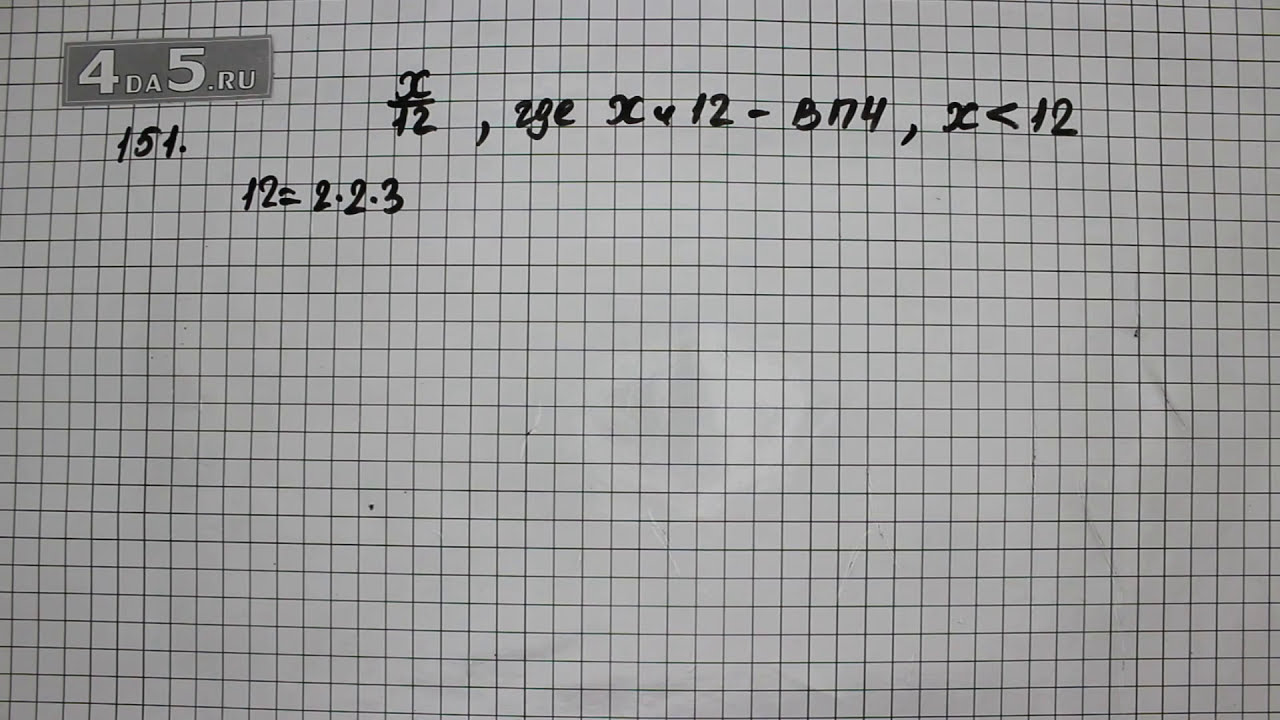 4DA5.RU
x/12, где x и 12 - ВПЧ, x < 12
151.
12 = 2·2·3